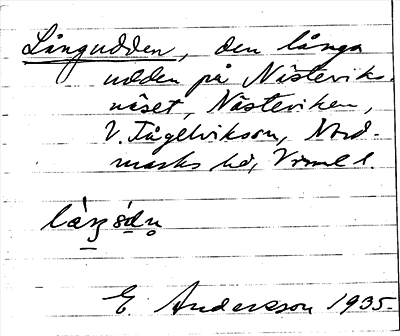 Långudden, den långa
udden på Nästeviks-
näset, Nästeviken,
V. Fågelvikson, Nord-
marks hd, Vrml l.
E. Andersson 1935